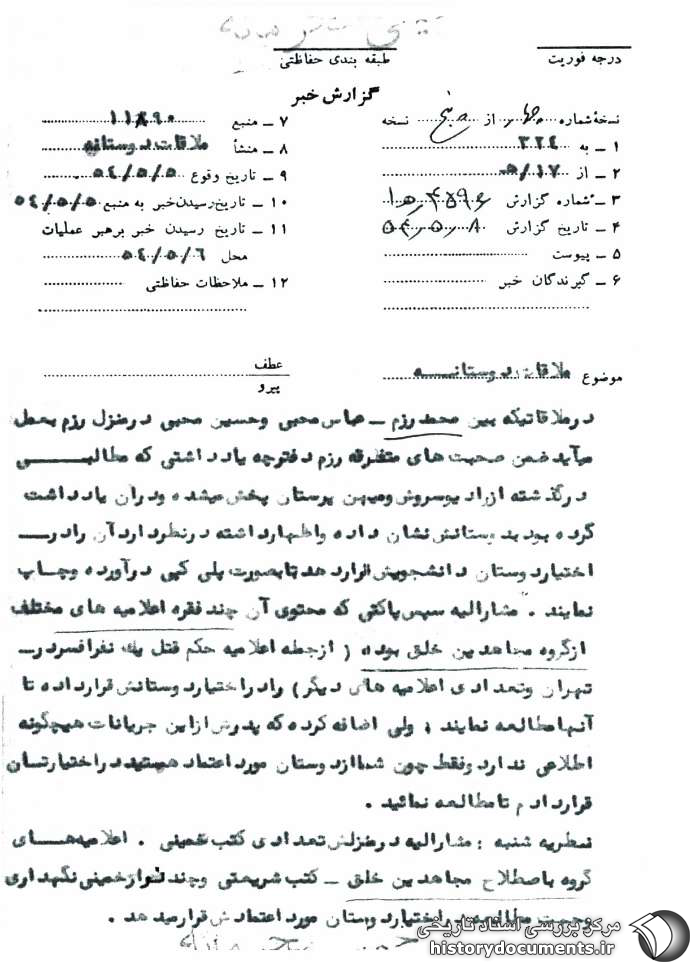 درجه فوریت
طبقه بندی حفاظتی
گزارش خبر
نسخهٔ شماره چهار از پنج نسخه
۱ ـ به ۳۲۴
۲ ـ از ۵/۱۷
۳ ـ شماره گزارش
۴ ـ تاریخ گزارش ۵۴٫۵٫۸
۵ ـ پیوست
۶ ـ گیرندگان خبر
۷ ـ منبع ۱۱۸۹۰
۸ ـ منشأ ملاقات دوستانه
۹ ـ تاریخ وقوع ۵۴/۵/۵
۱۰ ـ تاریخ رسیدن خبر به منبع ۵۴/۵/۵
۱۱ ـ تاریخ رسیدن خبر برهبر عملیات
محل ۵۴/۵/۶
۱۲ ـ ملاحظات حفاظتی
موضوع ملاقات دوستانـــه
عطف
پیرو
در ملاقاتیکه بین محمد رزم ـ عباس محبی وحسین محبی در منزل رزم بعمل
میآید ضمن صحبت های متفرقه رزم دفترچه یادداشتی که مطالبـــی
در گذشته از رادیو سروش ومیهن پرستان پخش میشده ودران یادداشت
کرده بود بدوستانش نشان داده واظهار داشته در نظر دارد آن را درـــ
اختیار دوستان دانشجویش قرار دهد تا بصورت پلی کپی در آورده و چـاپ
نمایند . مشارالیه سپس پاکتی که محتوی آن چند فقره اعلامیه های مختلف
از گروه مجاهدین خلق بوده ( از جمله اعلامیه حکم قتل یک نفر افسر درـ
تهران وتعدادی اعلامیه های دیگر ) را در اختیار دوستانش قرار داده تا
آنها مطالعه نمایند ، ولی اضافه کرده که پدرش از این جریانات هیچگونه
اطلاعی ندارد وفقط چون شما از دوستان مورد اعتماد هستید در اختیارتـان
قرار دادم تا مطالعه نمائید .
نظریه شنبه : مشارالیه در منزلش تعدادی کتب خمینی . اعلامیه‌هـــای
گروه باصطلاح مجاهدین خلق ـ کتب شریعتی وچند نوار از خمینی نگهداری
وجهت مطالعه در اختیار دوستان مورد اعتمادش قرار میدهد .
مرکز بررسی اسناد تاریخی
historydocuments.ir